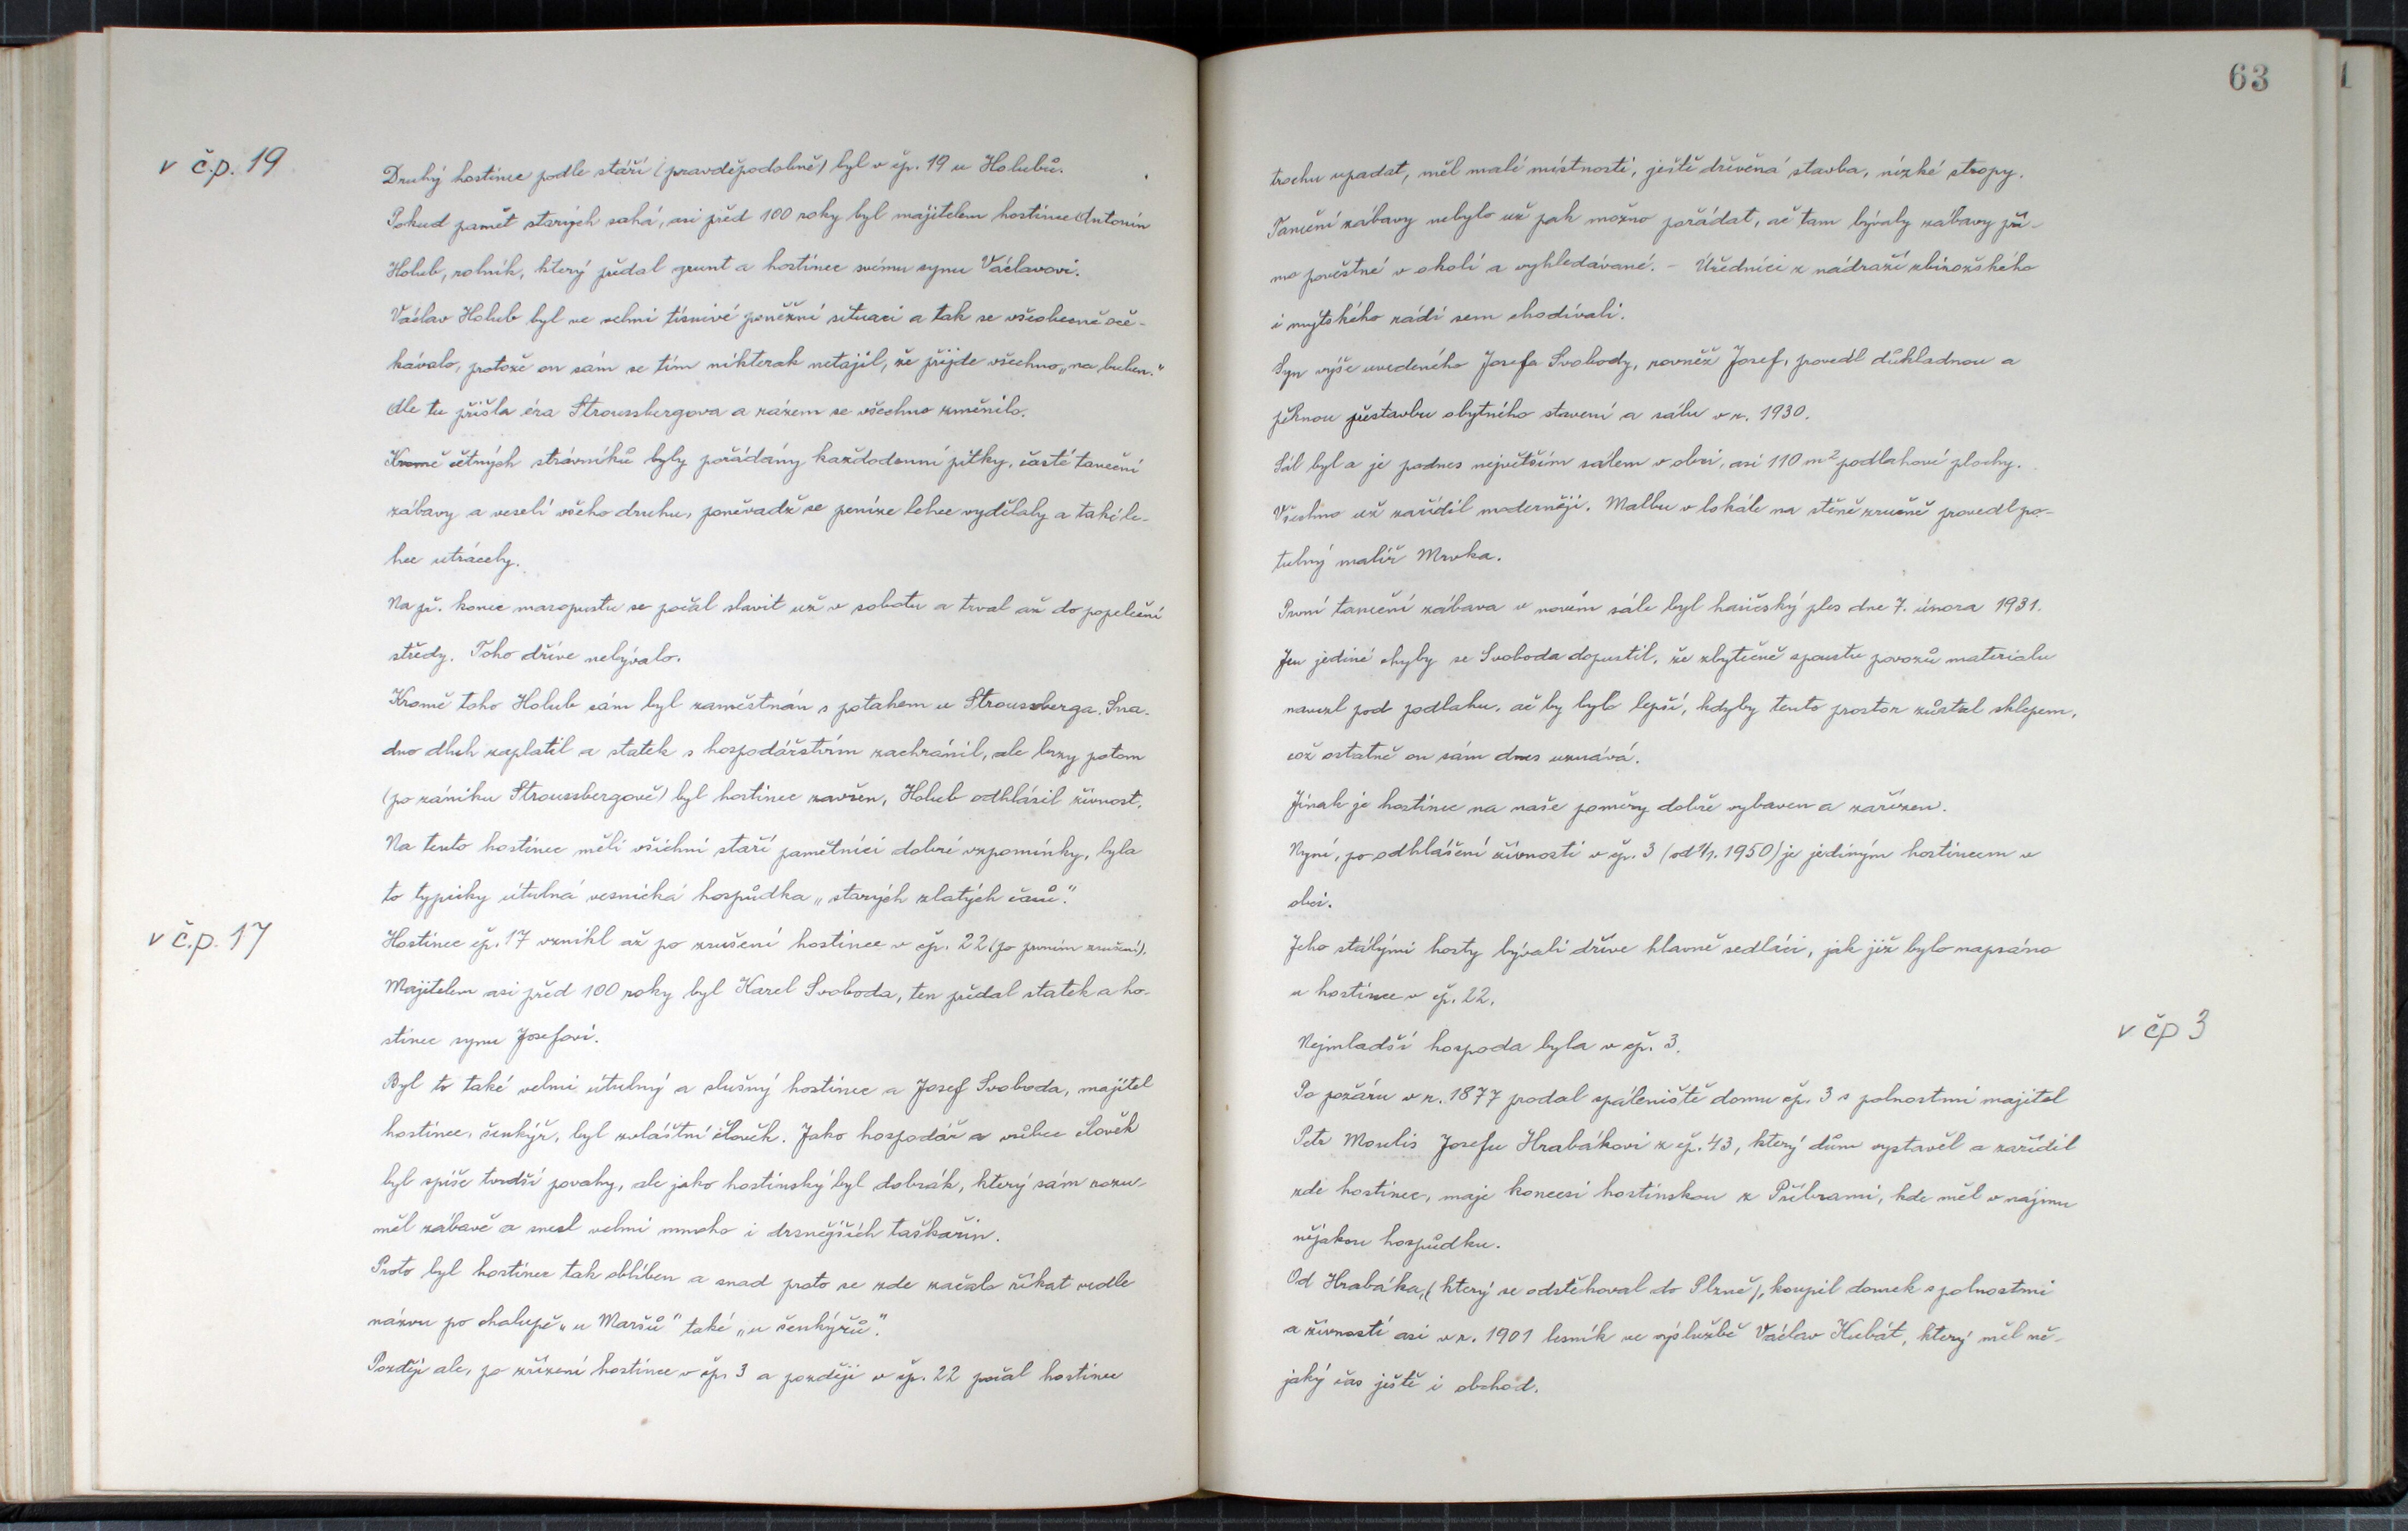 v č.p. 19
Druhý hostinec podle stáří (pravděpodobně) byl v čp. 19 u Holubů.
Pokud paměť starých sahá, asi před 100 roky byl majitelem hostince Antonín
Holub, rolník, který předal grunt a hostinec svému synu Václavovi.
Václav Holub byl ve velmi tísnivé peněžní situaci a tak se všeobecně oče-
kávalo, protože on sám se tím nikterak netajil, že přijde všechno „na buben."
Ale tu přišla éra Stroussbergova a rázem se všechno změnilo.
Kromě četných strávníků byly pořádány každodenní pitky, časté taneční
zábavy a veselí všeho druhu, poněvadž se peníze lehce vydělaly a také le-
hce utrácely.
Na př. konec masopustu se počal slavit už v sobotu a trval až do popeleční
středy. Toho dříve nebývalo.
Kromě toho Holub sám byl zaměstnán s potahem u Stroussberga. Sna-
dno dluh zaplatil a statek s hospodářstvím zachránil, ale brzy potom
(po zániku Stroussbergově) byl hostinec zavřen, Holub odhlásil živnost.
Na tento hostinec měli všichni staří pamětníci dobré vzpomínky, byla
to typicky útulná vesnická hospůdka „starých zlatých časů."
v č.p. 17
Hostinec čp. 17 vznikl až po zrušení hostince v čp. 22 (po prvním zrušení).
Majitelem asi před 100 roky byl Karel Svoboda, ten předal statek a ho-
stinec synu Josefovi.
Byl to také velmi útulný a slušný hostinec a Josef Svoboda, majitel
hostince, šenkýř, byl zvláštní člověk. Jako hospodář a vůbec člověk
byl spíše tvrdší povahy, ale jako hostinský byl dobrák, který sám rozu-
měl zábavě a snesl velmi mnoho i drsnějších taškařin.
Proto byl hostinec tak oblíben a snad proto se zde začalo říkat vedle
názvu po chalupě „u Maršů" také „u šenkýřů".
Později ale, po zřízení hostince v čp. 3 a později v čp. 22 počal hostinec
63
trochu upadat, měl malé místnosti, ještě dřevěná stavba, nízké stropy.
Taneční zábavy nebylo už pak možno pořádat, ač tam bývaly zábavy pří-
mo pověstné v okolí a vyhledávané. - Úředníci z nádraží zbirožského
i mýtského rádi sem chodívali.
Syn výše uvedeného Josefa Svobody, rovněž Josef, provedl důkladnou a
pěknou přestavbu obytného stavení a sálu v r. 1930.
Sál byl a je podnes největším sálem v obci, asi 110 m² podlahové plochy.
Všechno už zařídil moderněji. Malbu v lokále na stěně zručně provedl po-
tulný malíř Mrvka.
První taneční zábava v novém sále byl hasičský ples dne 7. února 1931.
Jen jediné chyby se Svoboda dopustil, že zbytečně spoustu povozů materialu
navezl pod podlahu, ač by bylo lepší, kdyby tento prostor zůstal sklepem,
což ostatně on sám dnes uznává.
Jinak je hostinec na naše poměry dobře vybaven a zařízen.
Nyní, po odhlášení živnosti v čp. 3 (od 1/1. 1950) je jediným hostincem v
obci.
Jeho stálými hosty bývali dříve hlavně sedláci, jak již bylo napsáno
u hostince v čp. 22.
v čp 3
Nejmladší hospoda byla v čp. 3.
Po požáru v r. 1877 prodal spáleniště domu čp. 3 s polnostmi majitel
Petr Moulis Josefu Hrabákovi z čp. 43, který dům vystavěl a zařídil
zde hostinec, maje koncesi hostinskou z Příbrami, kde měl v nájmu
nějakou hospůdku.
Od Hrabáka, (který se odstěhoval do Plzně), koupil domek s polnostmi
a živností asi v r. 1901 lesník ve výslužbě Václav Kubát, který měl ně-
jaký čas ještě i obchod.